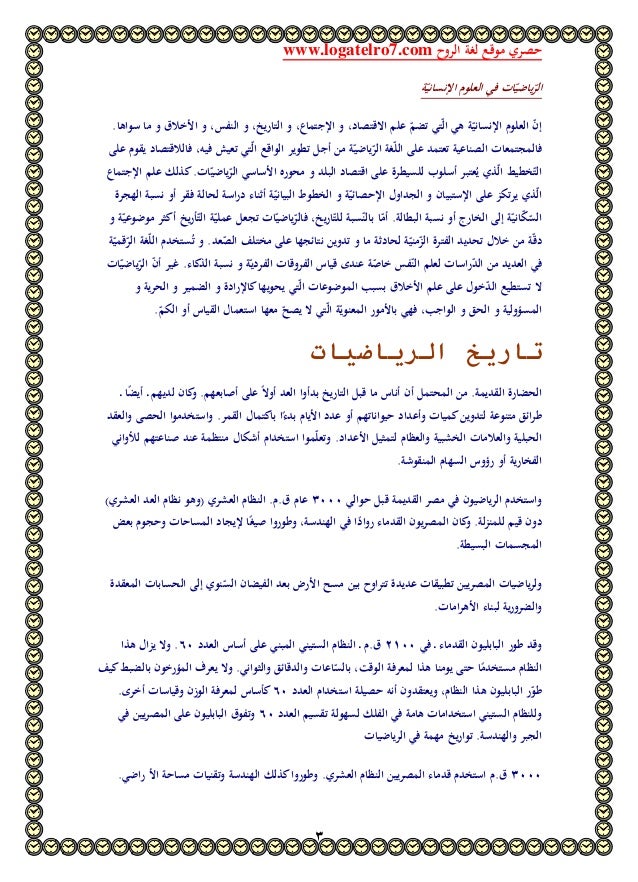 حصري موقع لغة الروح www.logatelro7.com
الرّياضيّات في العلوم الإنسانيّة
إنّ العلوم الإنسانيّة هي الّتي تضمّ علم الاقتصاد، و الإجتماع، و التاريخ، و النفس، و الأخلاق و ما سواها.
فالمجتمعات الصناعية تعتمد على اللّغة الرّياضيّة من أجل تطوير الواقع الّتي تعيش فيه، فالاقتصاد يقوم على
التّخطيط الّذي يُعتبر أسلوب للسيطرة على اقتصاد البلد و محوره الأساسي الرّياضيّات. كذلك علم الإجتماع
الّذي يرتكز على الإستبيان و الجداول الإحصائيّة و الخطوط البيانيّة أثناء دراسة لحالة فقر أو نسبة الهجرة
السّكّانيّة إلى الخارج أو نسبة البطالة. أمّا بالنّسبة للتّاريخ، فالرّياضيّات تجعل عمليّة التّأريخ أكثر موضوعيّة و
دقّة من خلال تحديد الفترة الزّمنيّة لحادثة ما و تدوين نتائجها على مختلف الصّعد. و تُستخدم اللّغة الرّقميّة
في العديد من الدّراسات لعلم النّفس خاصّة عندى قياس الفروقات الفرديّة و نسبة الذكاء. غير أنّ الرّياضيّات
لا تستطيع الدّخول على علم الأخلاق بسبب الموضوعات الّتي يحويها كالإرادة و الضمير و الحرية و
المسؤولية و الحق و الواجب، فهي بالأمور المعنويّة الّتي لا يصحّ معها استعمال القياس أو الكمّ.
تاريخ الرياضيات
الحضارة القديمة. من المحتمل أن أناس ما قبل التاريخ بدأوا العد أولاً على أصابعهم. وكان لديهم، أيضًا ،
طرائق متنوعة لتدوين كميات وأعداد حيواناتهم أو عدد الأيام بدءًا باكتمال القمر. واستخدموا الحصى والعقد
الحبلية والعلامات الخشبية والعظام لتمثيل الأعداد. وتعلّموا استخدام أشكال منتظمة عند صناعتهم للأواني
الفخارية أو رؤوس السهام المنقوشة.
واستخدم الرياضيون في مصر القديمة قبل حوالي ٣٠٠٠ عام ق.م. النظام العشري (وهو نظام العد العشري)
دون قيم للمنزلة. وكان المصريون القدماء روادًا في الهندسة، وطوروا صيغًا لإيجاد المساحات وحجوم بعض
المجسمات البسيطة.
ولرياضيات المصريين تطبيقات عديدة تتراوح بين مسح الأرض بعد الفيضان السّنوي إلى الحسابات المعقدة
والضرورية لبناء الأهرامات.
وقد طور البابليون القدماء ، في ٢١٠٠ ق.م ، النظام الستيني المبني على أساس العدد ٦٠. ولا يزال هذا
النظام مستخدمًا حتى يومنا هذا لمعرفة الوقت، بالسّاعات والدقائق والثواني. ولا يعرف المؤرخون بالضبط كيف
طوّر البابليون هذا النظام، ويعتقدون أنه حصيلة استخدام العدد ٦٠ كأساس لمعرفة الوزن وقياسات أخرى.
وللنظام الستيني استخدامات هامة في الفلك لسهولة تقسيم العدد ٦٠ وتفوق البابليون على المصريين في
الجبر والهندسة. تواريخ مهمة في الرياضيات
٣٠٠٠ ق.م استخدم قدماء المصريين النظام العشري. وطوروا كذلك الهندسة وتقنيات مساحة الأ راضي.
٣